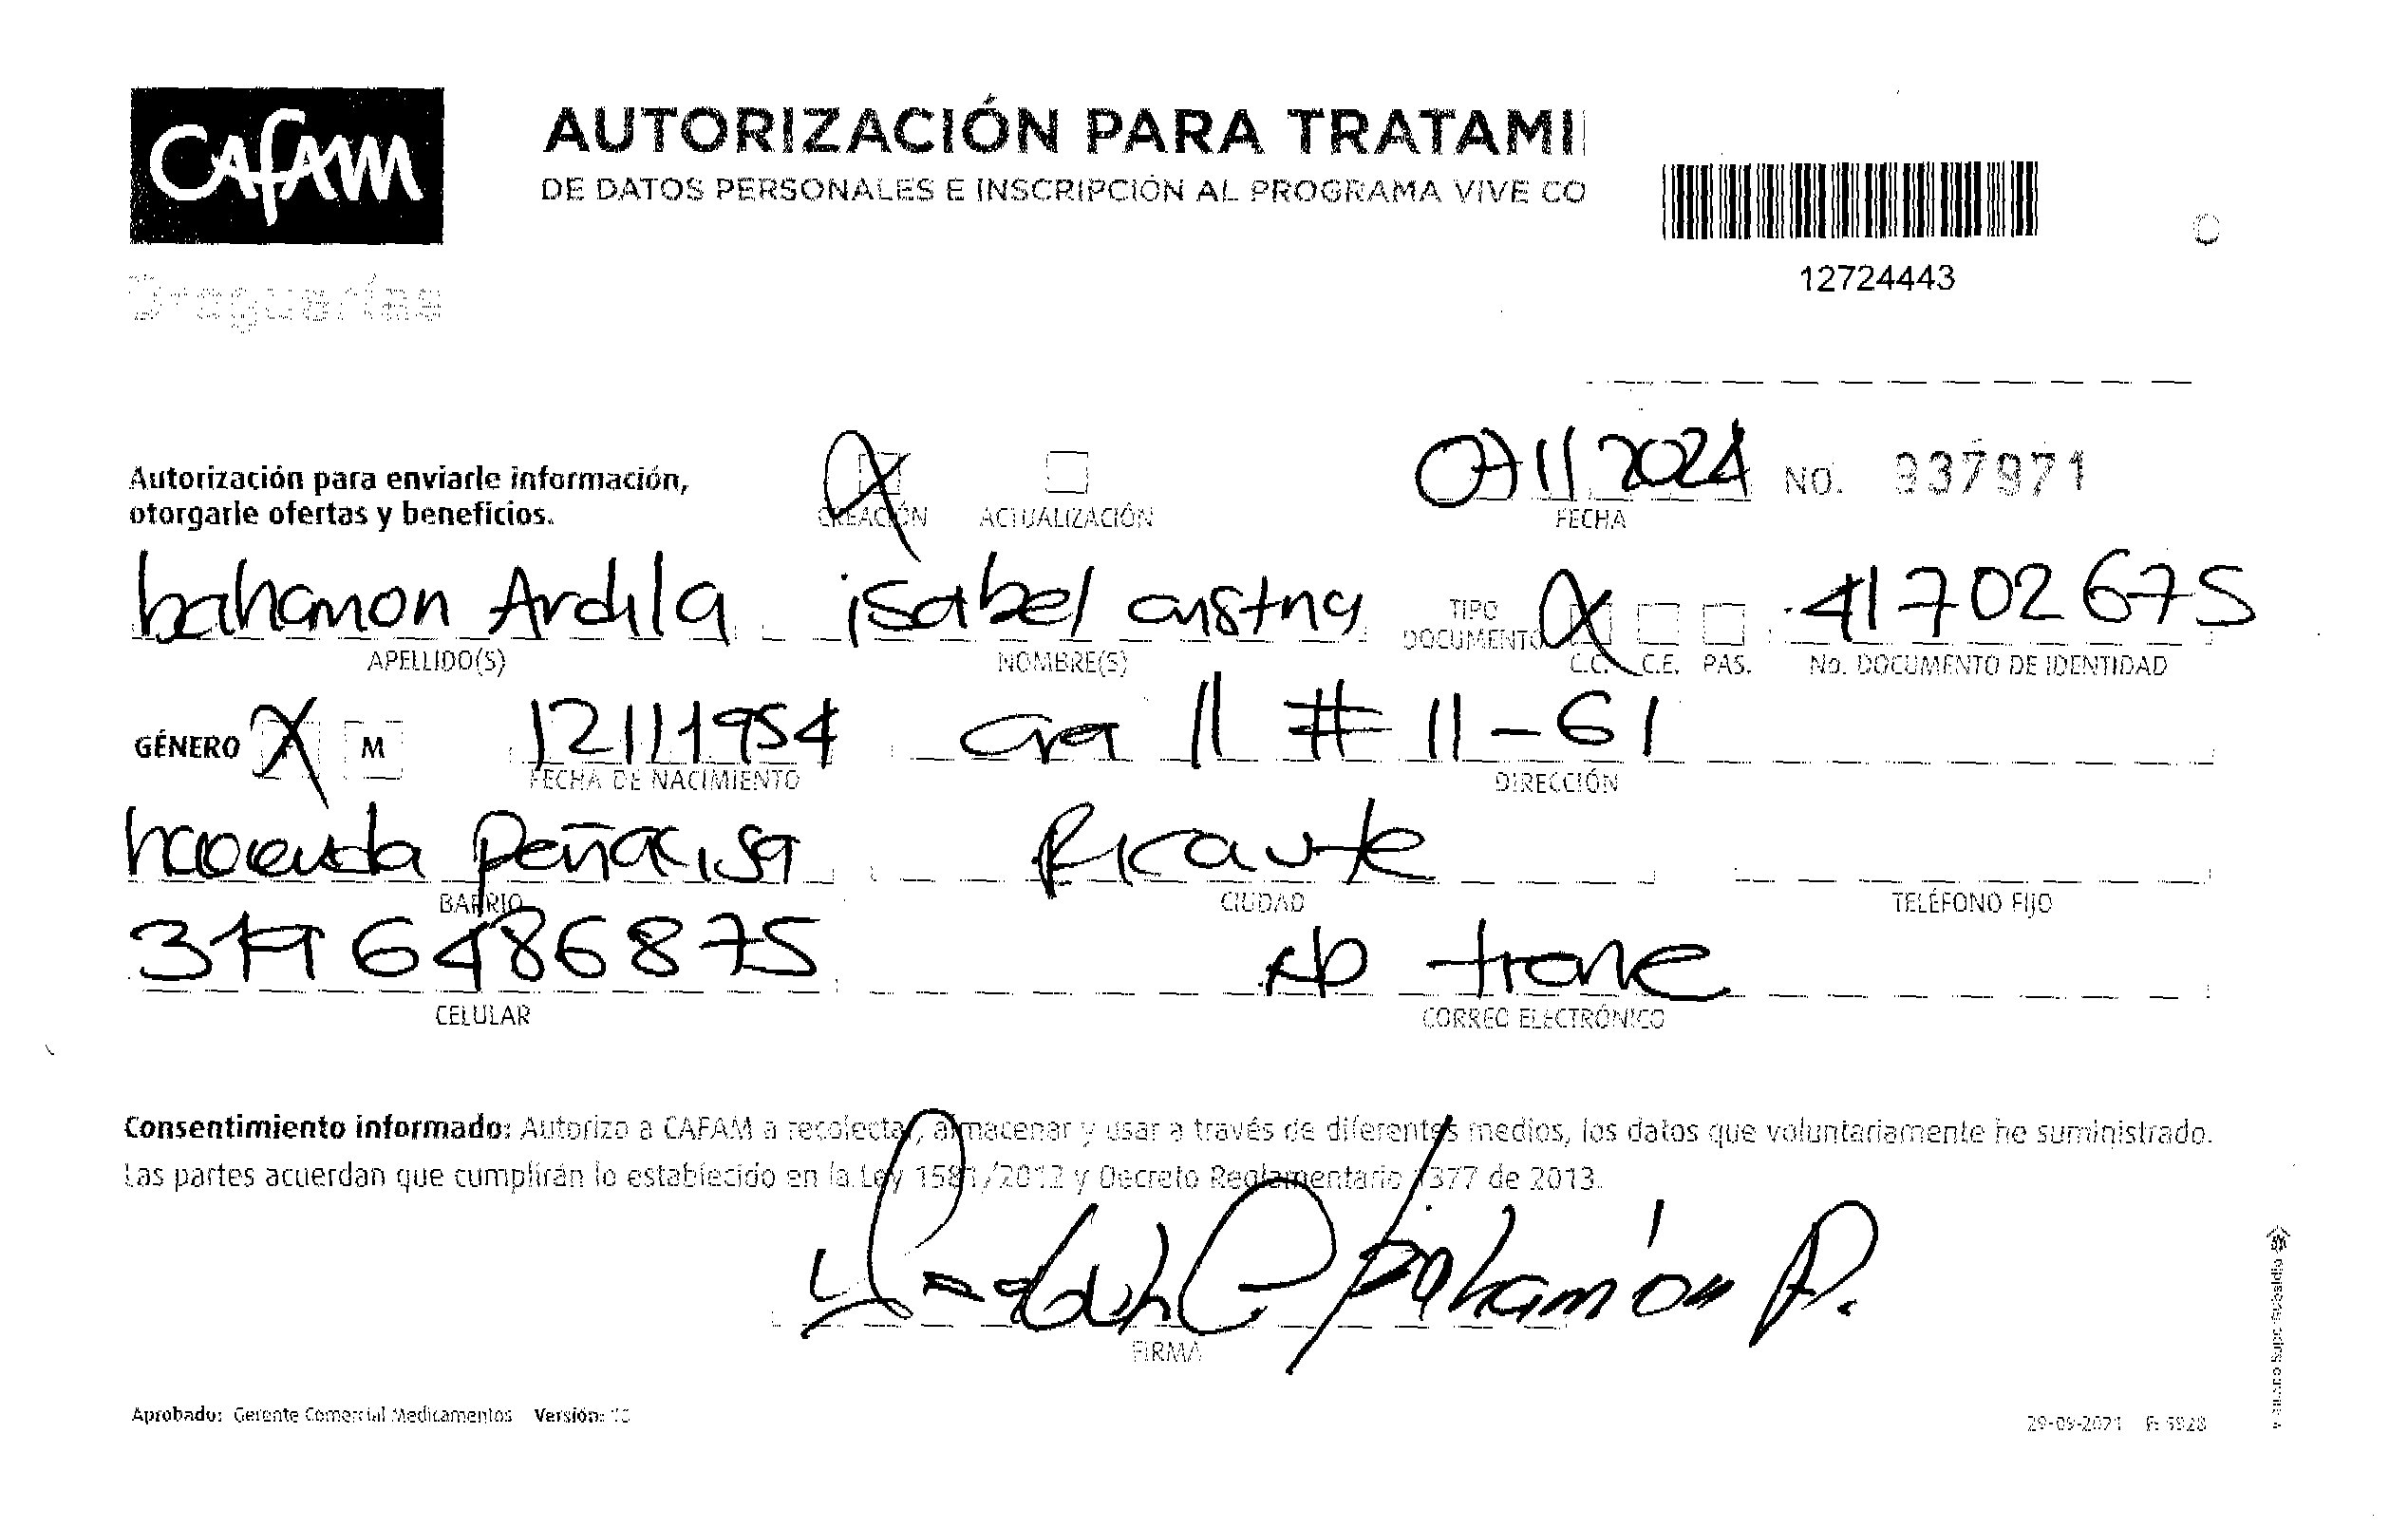 CAFAM
Droguerías
AUTORIZACIÓN PARA TRATAMI
DE DATOS PERSONALES E INSCRIPCIÓN AL PROGRAMA VIVE CO
12724443
Autorización para enviarle información,
otorgarle ofertas y beneficios.
CREACIÓN ACTUALIZACIÓN
07 11 2024 NO. 937971
FECHA
bahamon Ardila isabel cristina TIPO DOCUMENTO 41702675
APELLIDO(S) NOMBRE(S) C.C. C.E. PAS. No. DOCUMENTO DE IDENTIDAD
GÉNERO M 12111954 cra 11 # 11-61
FECHA DE NACIMIENTO DIRECCIÓN
hacienda Peñalisa Ricaurte
BARRIO CIUDAD TELÉFONO FIJO
6486875 no tiene
CELULAR CORREO ELECTRÓNICO
Consentimiento informado: Autorizo a CAFAM a recolectar, almacenar y usar a través de diferentes medios, los datos que voluntariamente he suministrado.
Las partes acuerdan que cumplirán lo establecido en la Ley 1581/2012 y Decreto Reglamentario 1377 de 2013.
Isabel C Bahamón A.
FIRMA
Aprobado: Gerente Comercial Medicamentos Versión:
29-09-2021